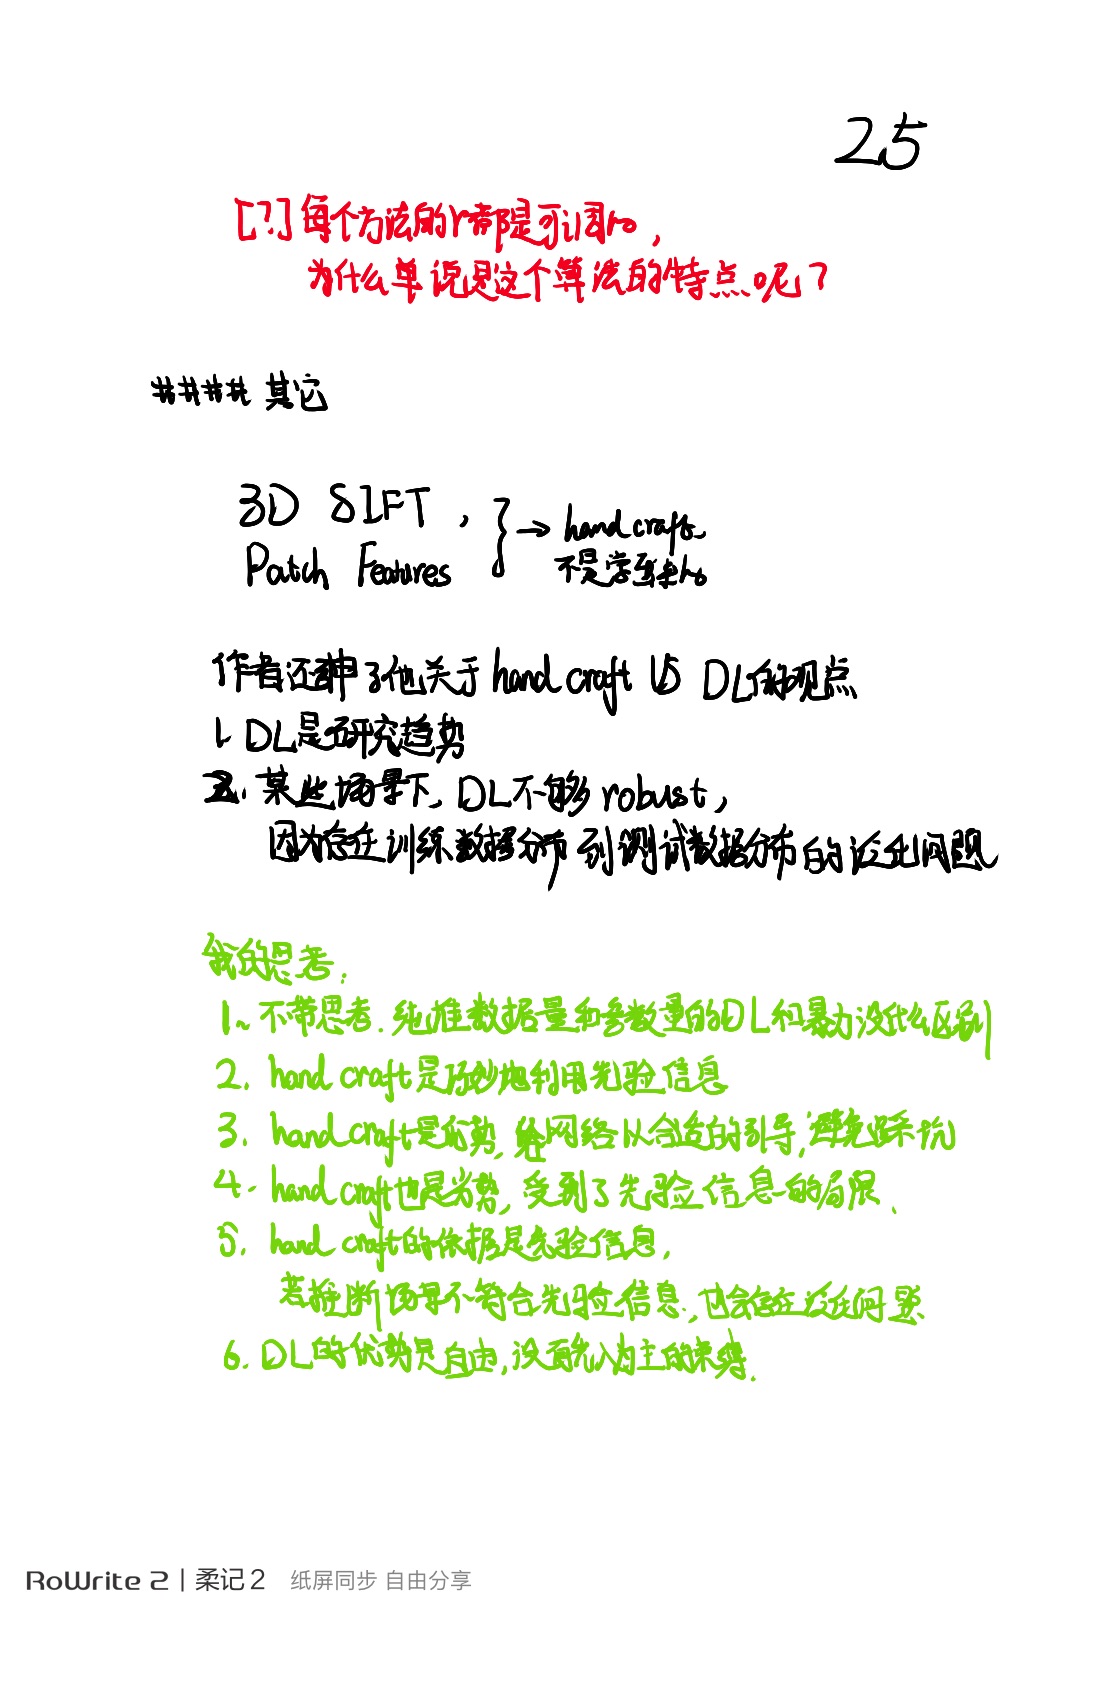 25
[?] 每个方法的r都是可调的,
为什么单说是这个算法的特点呢?
#### 其它
3D SIFT,
Patch Features
} → hand craft.
不是学到来的
作者还申了他关于 hand craft VS DL的观点
1. DL是研究趋势
2. 某些场景下, DL不够 robust,
因为存在训练数据分布到测试数据分布的泛化问题
我的思考:
1. 不带思考. 纯堆数据量和参数量的DL和暴力没什么区别
2. hand craft是巧妙地利用先验信息
3. hand craft是优势, 给网络以合适的引导, 避免踩坑
4. hand craft也是劣势, 受到了先验信息的局限.
5. hand craft的依据是先验信息,
若推断场景不符合先验信息, 也会存在泛化问题
6. DL的优势是自由, 没有先入为主的束缚.
RoWrite 2 | 柔记 2 纸屏同步 自由分享